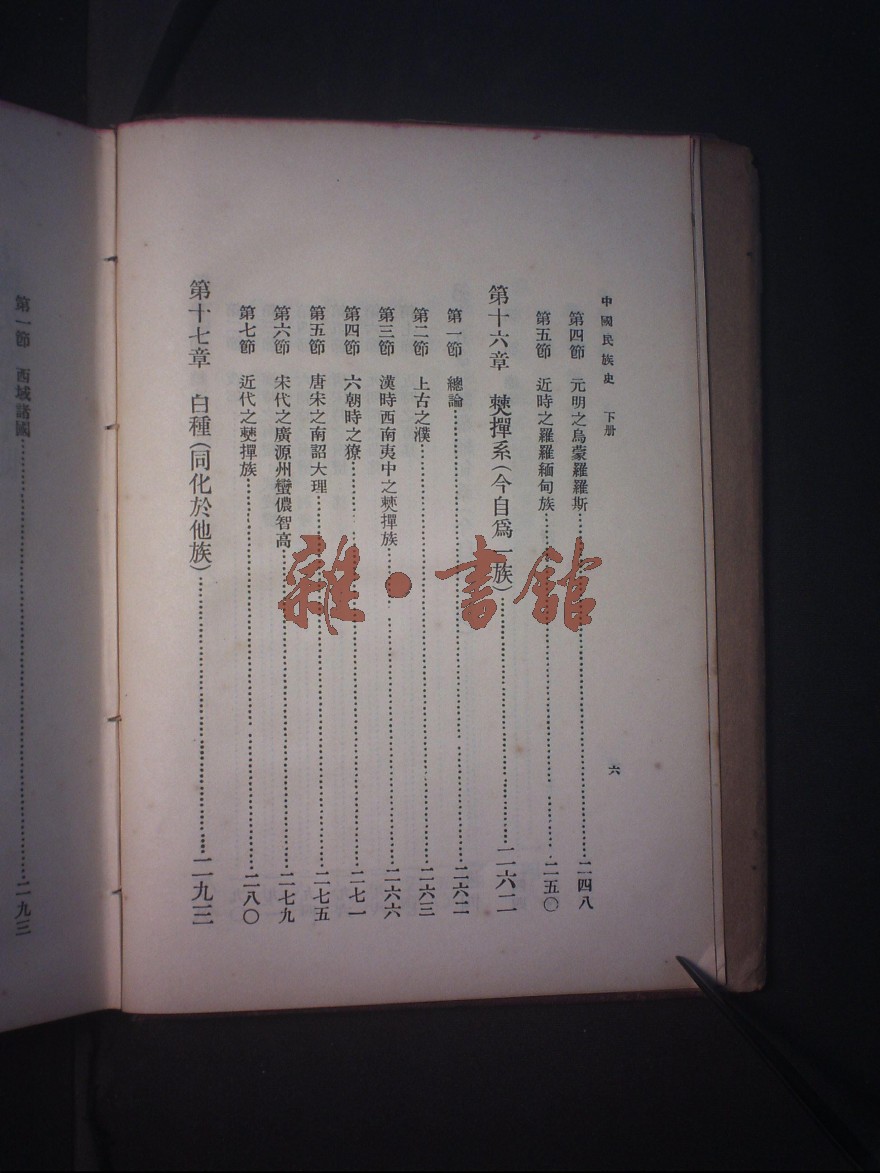 中國民族史 下册
六
第四節 元明之烏蒙羅羅斯……二四八
第五節 近時之羅羅緬甸族……二五〇
第十六章 僰撣系(今自爲一族)……二六二
第一節 總論……二六二
第二節 上古之濮……二六三
第三節 漢時西南夷中之僰撣族……二六六
第四節 六朝時之獠……二七一
第五節 唐宋之南詔大理……二七五
第六節 宋代之廣源州蠻儂智高……二七九
第七節 近代之僰撣族……二八〇
第十七章 白種(同化於他族)……二九三
第一節 西域諸國……二九三
雜·書館